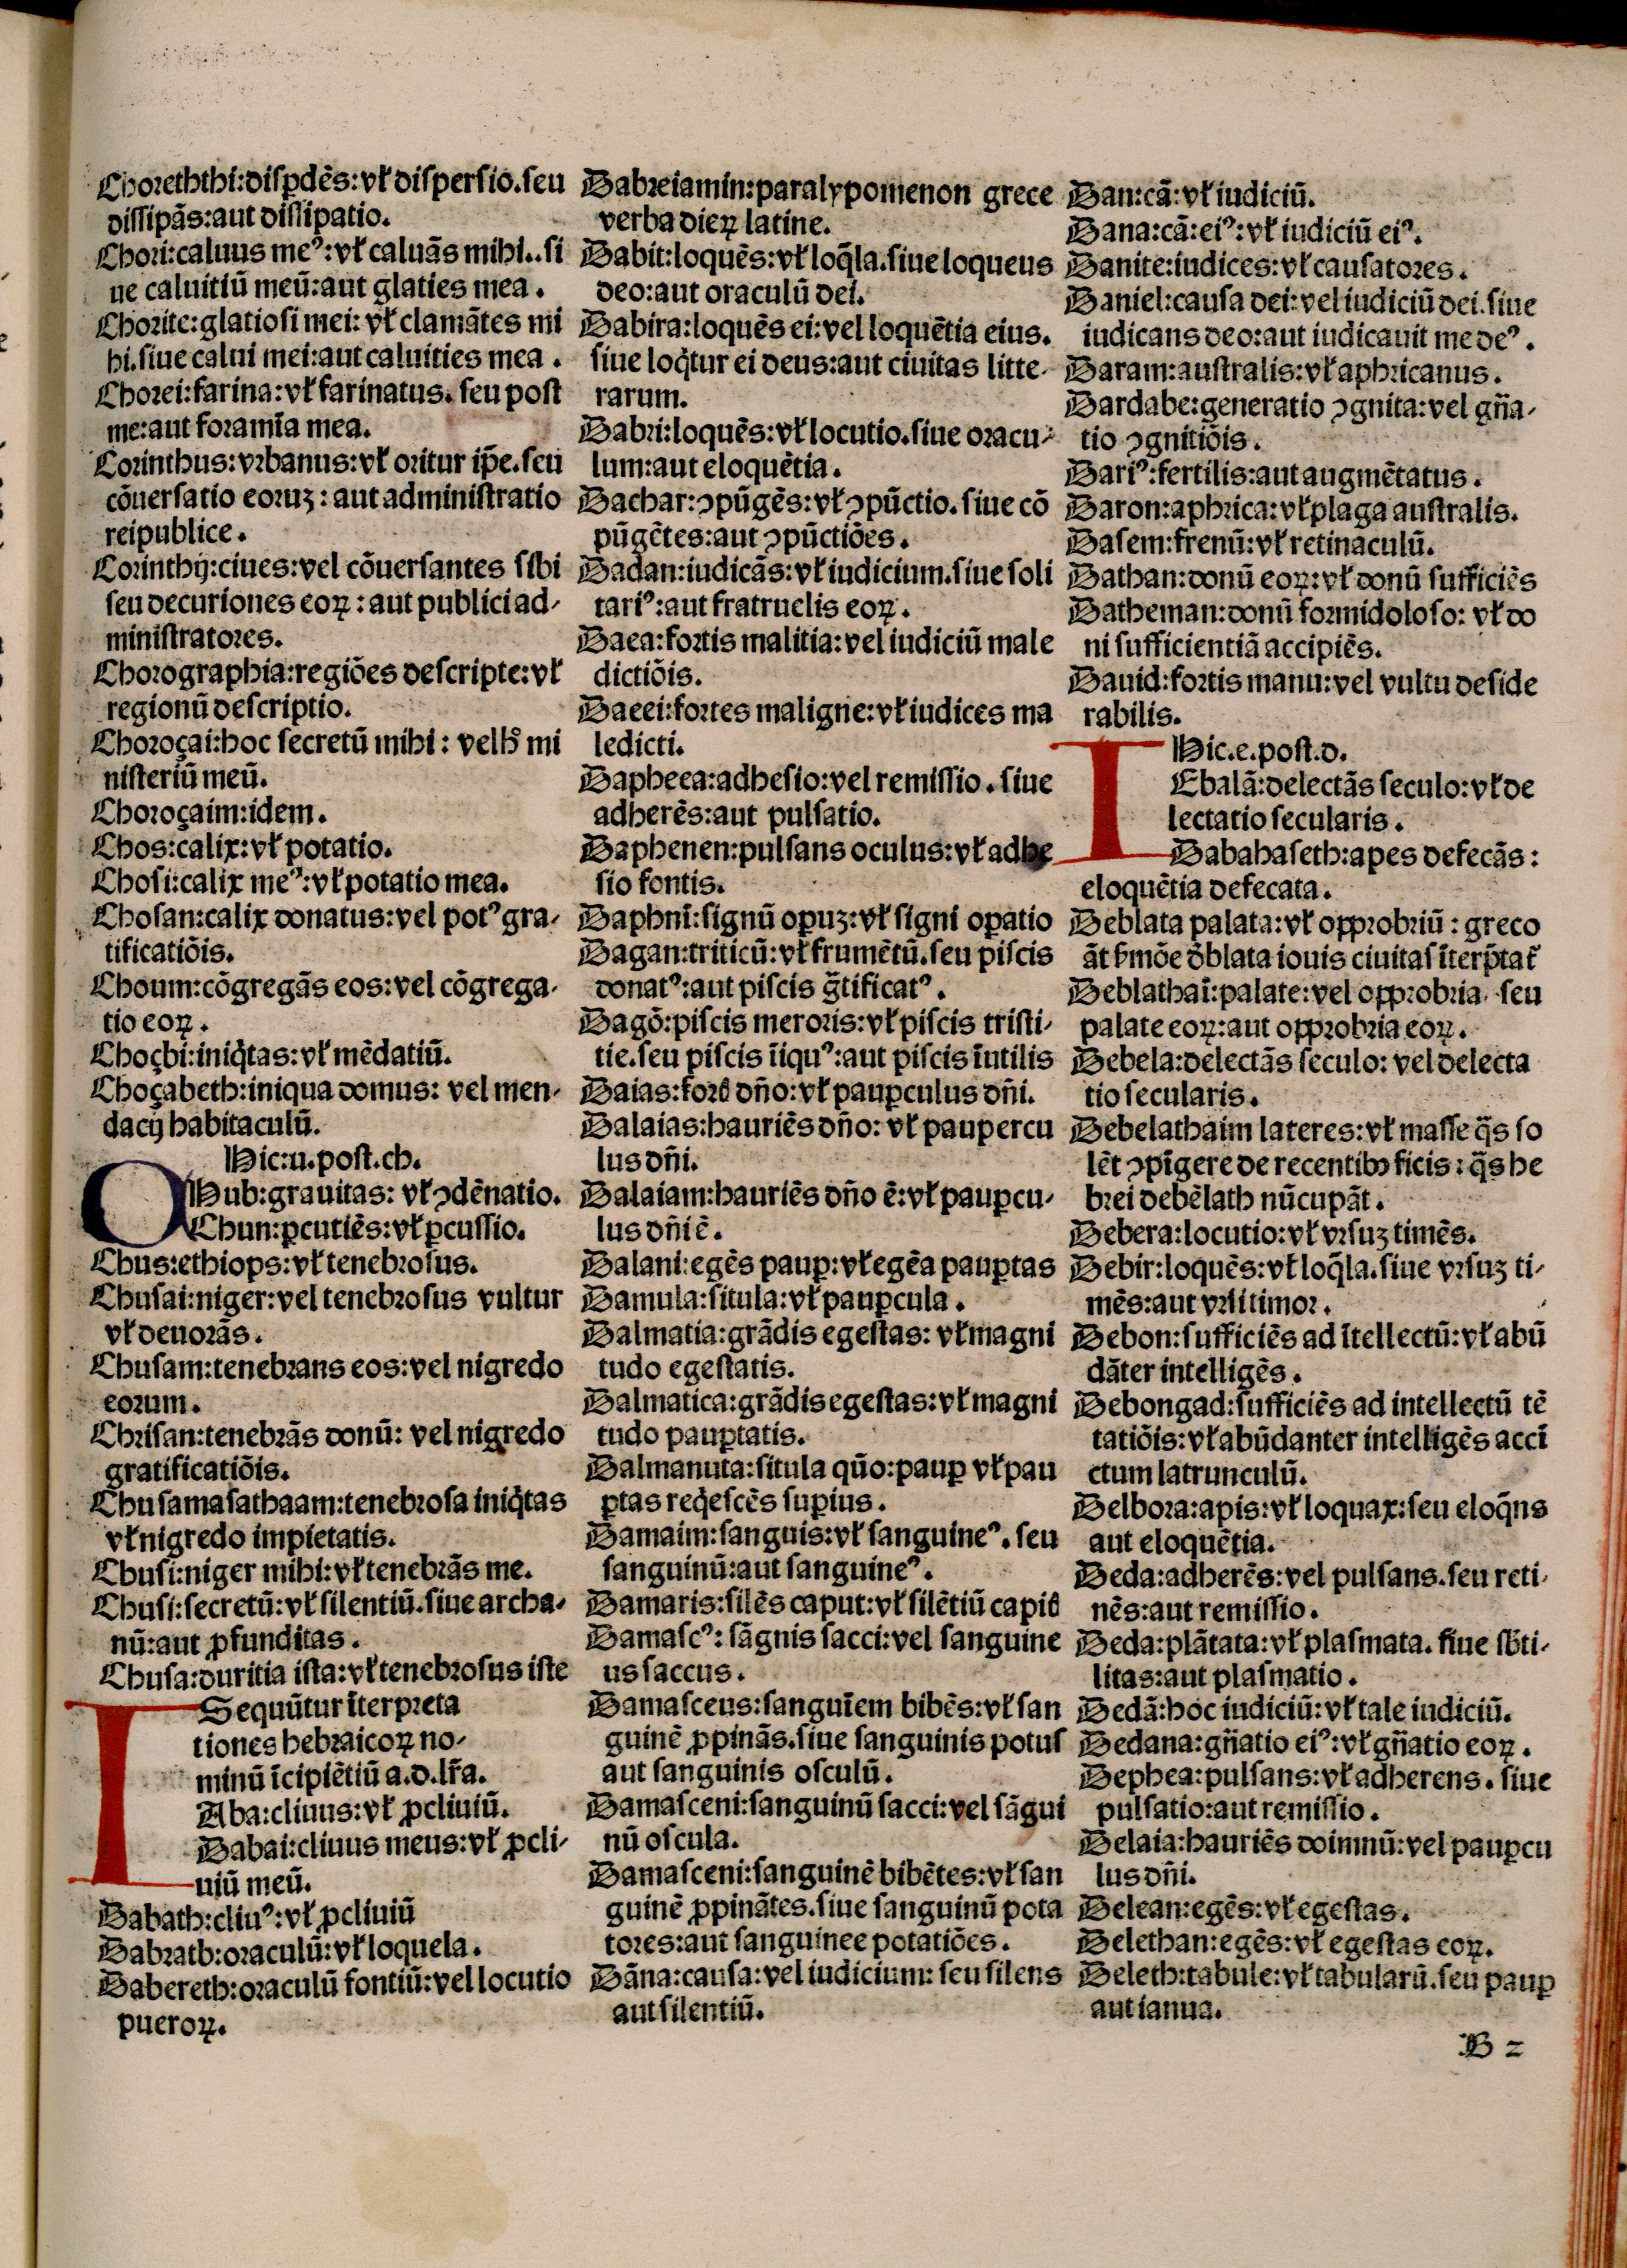 Choreththi:disꝑdēs:vł dispersio.seu
dissipās:aut dissipatio.
Chori:caluus meꝰ:vł caluās mihi..si
ue caluitiū meū:aut glaties mea.
Chorite:glatiosi mei:vł clamātes mi
hi.siue calui mei:aut caluities mea.
Chorei:farina:vł farinatus.seu post
me:aut foramīa mea.
Corinthus:vrbanus:vł oritur ip̄e.seu
cōuersatio eoruꝫ:aut administratio
reipublice.
Corinthij:ciues:vel cōuersantes sibi
seu decuriones eoꝝ:aut publici ad-
ministratores.
Chorographia:regiōes descripte:vł
regionū descriptio.
Choroçai:hoc secretū mihi:vel hͦ mi
nisteriū meū.
Choroçaim:idem.
Chos:calix:vł potatio.
Chosi:calix meꝰ:vł potatio mea.
Chosan:calix donatus:vel potꝰ gra-
tificatiōis.
Choum:cōgregās eos:vel cōgrega-
tio eoꝝ.
Choçbi:iniq̇tas:vł mēdatiū.
Choçabeth:iniqua domus:vel men-
dacij habitaculū.
Hic:u.post.ch.
CHub:grauitas:vł ꝯdēnatio.
Chun:ꝑcutiēs:vł ꝑcussio.
Chus:ethiops:vł tenebrosus.
Chusai:niger:vel tenebrosus vultur
vł deuorās.
Chusam:tenebrans eos:vel nigredo
eorum.
Chrisan:tenebrās donū:vel nigredo
gratificatiōis.
Chusamasathaam:tenebrosa iniq̇tas
vł nigredo impietatis.
Chusi:niger mihi:vł tenebrās me.
Chusi:secretū:vł silentiū.siue archa-
nū:aut ꝓfunditas.
Chusa:duritia ista:vł tenebrosus iste
Sequūtur īterpreta
tiones hebraicoꝝ no-
minū īcipiētiū a.d.lr̄a.
Aba:cliuus:vł ꝓcliuiū.
Dabai:cliuus meus:vł ꝓcli-
uiū meū.
Dabath:cliuꝰ:vł ꝓcliuiū
Dabrath:oraculū:vł loquela.
Dabereth:oraculū fontiū:vel locutio
pueroꝝ.
Dabreiamin:paralypomenon grece
verba dieꝝ latine.
Dabit:loquēs:vł loq̄la.siue loqueus
deo:aut oraculū dei.
Dabira:loquēs ei:vel loquētia eius.
siue loq̇tur ei deus:aut ciuitas litte-
rarum.
Dabri:loquēs:vł locutio.siue oracu-
lum:aut eloquētia.
Dachar:ꝯpūgēs:vł ꝯpūctio.siue cō
pūgētes:aut ꝯpūctiōes.
Dadan:iudicās:vł iudicium.siue soli
tariꝰ:aut fratruelis eoꝝ.
Daea:fortis malitia:vel iudiciū male
dictiōis.
Daeei:fortes maligne:vł iudices ma
ledicti.
Dapheea:adhesio:vel remissio.siue
adherēs:aut pulsatio.
Daphenen:pulsans oculus:vł adhe
sio fontis.
Daphnī:signū oꝑuꝫ:vł signi oꝑatio
Dagan:triticū:vł frumētū.seu piscis
donatꝰ:aut piscis g̃tificatꝰ.
Dagō:piscis meroris:vł piscis tristi-
tie.seu piscis īiquꝰ:aut piscis īutilis
Daias:fors dn̄o:vł pauꝑculus dn̄i.
Dalaias:hauriēs dn̄o:vł paupercu
lus dn̄i.
Dalaiam:hauriēs dn̄o ē:vł pauꝑcu-
lus dn̄i ē.
Dalani:egēs pauꝑ:vł egēa pauꝑtas
Damula:situla:vł pauꝑcula.
Dalmatia:grādis egestas:vł magni
tudo egestatis.
Dalmatica:grādis egestas:vł magni
tudo pauꝑtatis.
Dalmanuta:situla qūo:pauꝑ vł pau
ꝑtas req̇escēs suꝑius.
Damaim:sanguis:vł sanguineꝰ.seu
sanguinū:aut sanguineꝰ.
Damaris:silēs caput:vł silētiū capis
Damascꝰ:sāgnis sacci:vel sanguine
us saccus.
Damasceus:sanguīem bibēs:vł san
guinē ꝓpinās.siue sanguinis potus
aut sanguinis osculū.
Damasceni:sanguinū sacci:vel sāgui
nū oscula.
Damasceni:sanguinē bibētes:vł san
guinē ꝓpinātes.siue sanguinū pota
tores:aut sanguinee potatiōes.
Dāna:causa:vel iudicium:seu silens
aut silentiū.
Dan:cā:vł iudiciū.
Dana:cā:eiꝰ:vł iudiciū eiꝰ.
Danite:iudices:vł causatores.
Daniel:causa dei:vel iudiciū dei.siue
iudicans deo:aut iudicauit me deꝰ.
Daram:australis:vł aphricanus.
Dardabe:generatio ꝯgnita:vel gn̄a-
tio ꝯgnitiōis.
Dariꝰ:fertilis:aut augmētatus.
Daron:aphrica:vł plaga australis.
Dasem:frenū:vł retinaculū.
Dathan:donū eoꝝ:vł donū sufficiēs
Datheman:donū formidoloso:vł do
ni sufficientiā accipiēs.
Dauid:fortis manu:vel vultu deside
rabilis.
Hic.e.post.d.
Ebalā:delectās seculo:vł de
lectatio secularis.
Dabahaseth:apes defecās:
eloquētia defecata.
Deblata palata:vł opprobriū:greco
āt ẜmōe dēblata iouis ciuitas īterp̄tat̄
Deblathaī:palate:vel opprobria.seu
palate eoꝝ:aut opprobria eoꝝ.
Debela:delectās seculo:vel delecta
tio secularis.
Debelathaim lateres:vł masse q̄s so
lēt ꝯpīgere de recentibꝯ ficis:q̄s he
brei debēlath nūcupāt.
Debera:locutio:vł vrsuꝫ timēs.
Debir:loquēs:vł loq̄la.siue vrsuꝫ ti-
mēs:aut vrsi timor.
Debon:sufficiēs ad ītellectū:vł abū
dāter intelligēs.
Debongad:sufficiēs ad intellectū tē
tatiōis:vł abūdanter intelligēs accī
ctum latrunculū.
Delbora:apis:vł loquax:seu eloq̄ns
aut eloquētia.
Deda:adherēs:vel pulsans.seu reti-
nēs:aut remissio.
Deda:plātata:vł plasmata.siue sb̄ti-
litas:aut plasmatio.
Dedā:hoc iudiciū:vł tale iudiciū.
Dedana:gn̄atio eiꝰ:vł gn̄atio eoꝝ.
Dephea:pulsans:vł adherens.siue
pulsatio:aut remissio.
Delaia:hauriēs doimnū:vel pauꝑcu
lus dn̄i.
Delean:egēs:vł egestas.
Delethan:egēs:vł egestas eoꝝ.
Deleth:tabule:vł tabularū.seu pauꝑ
aut ianua.
B 2